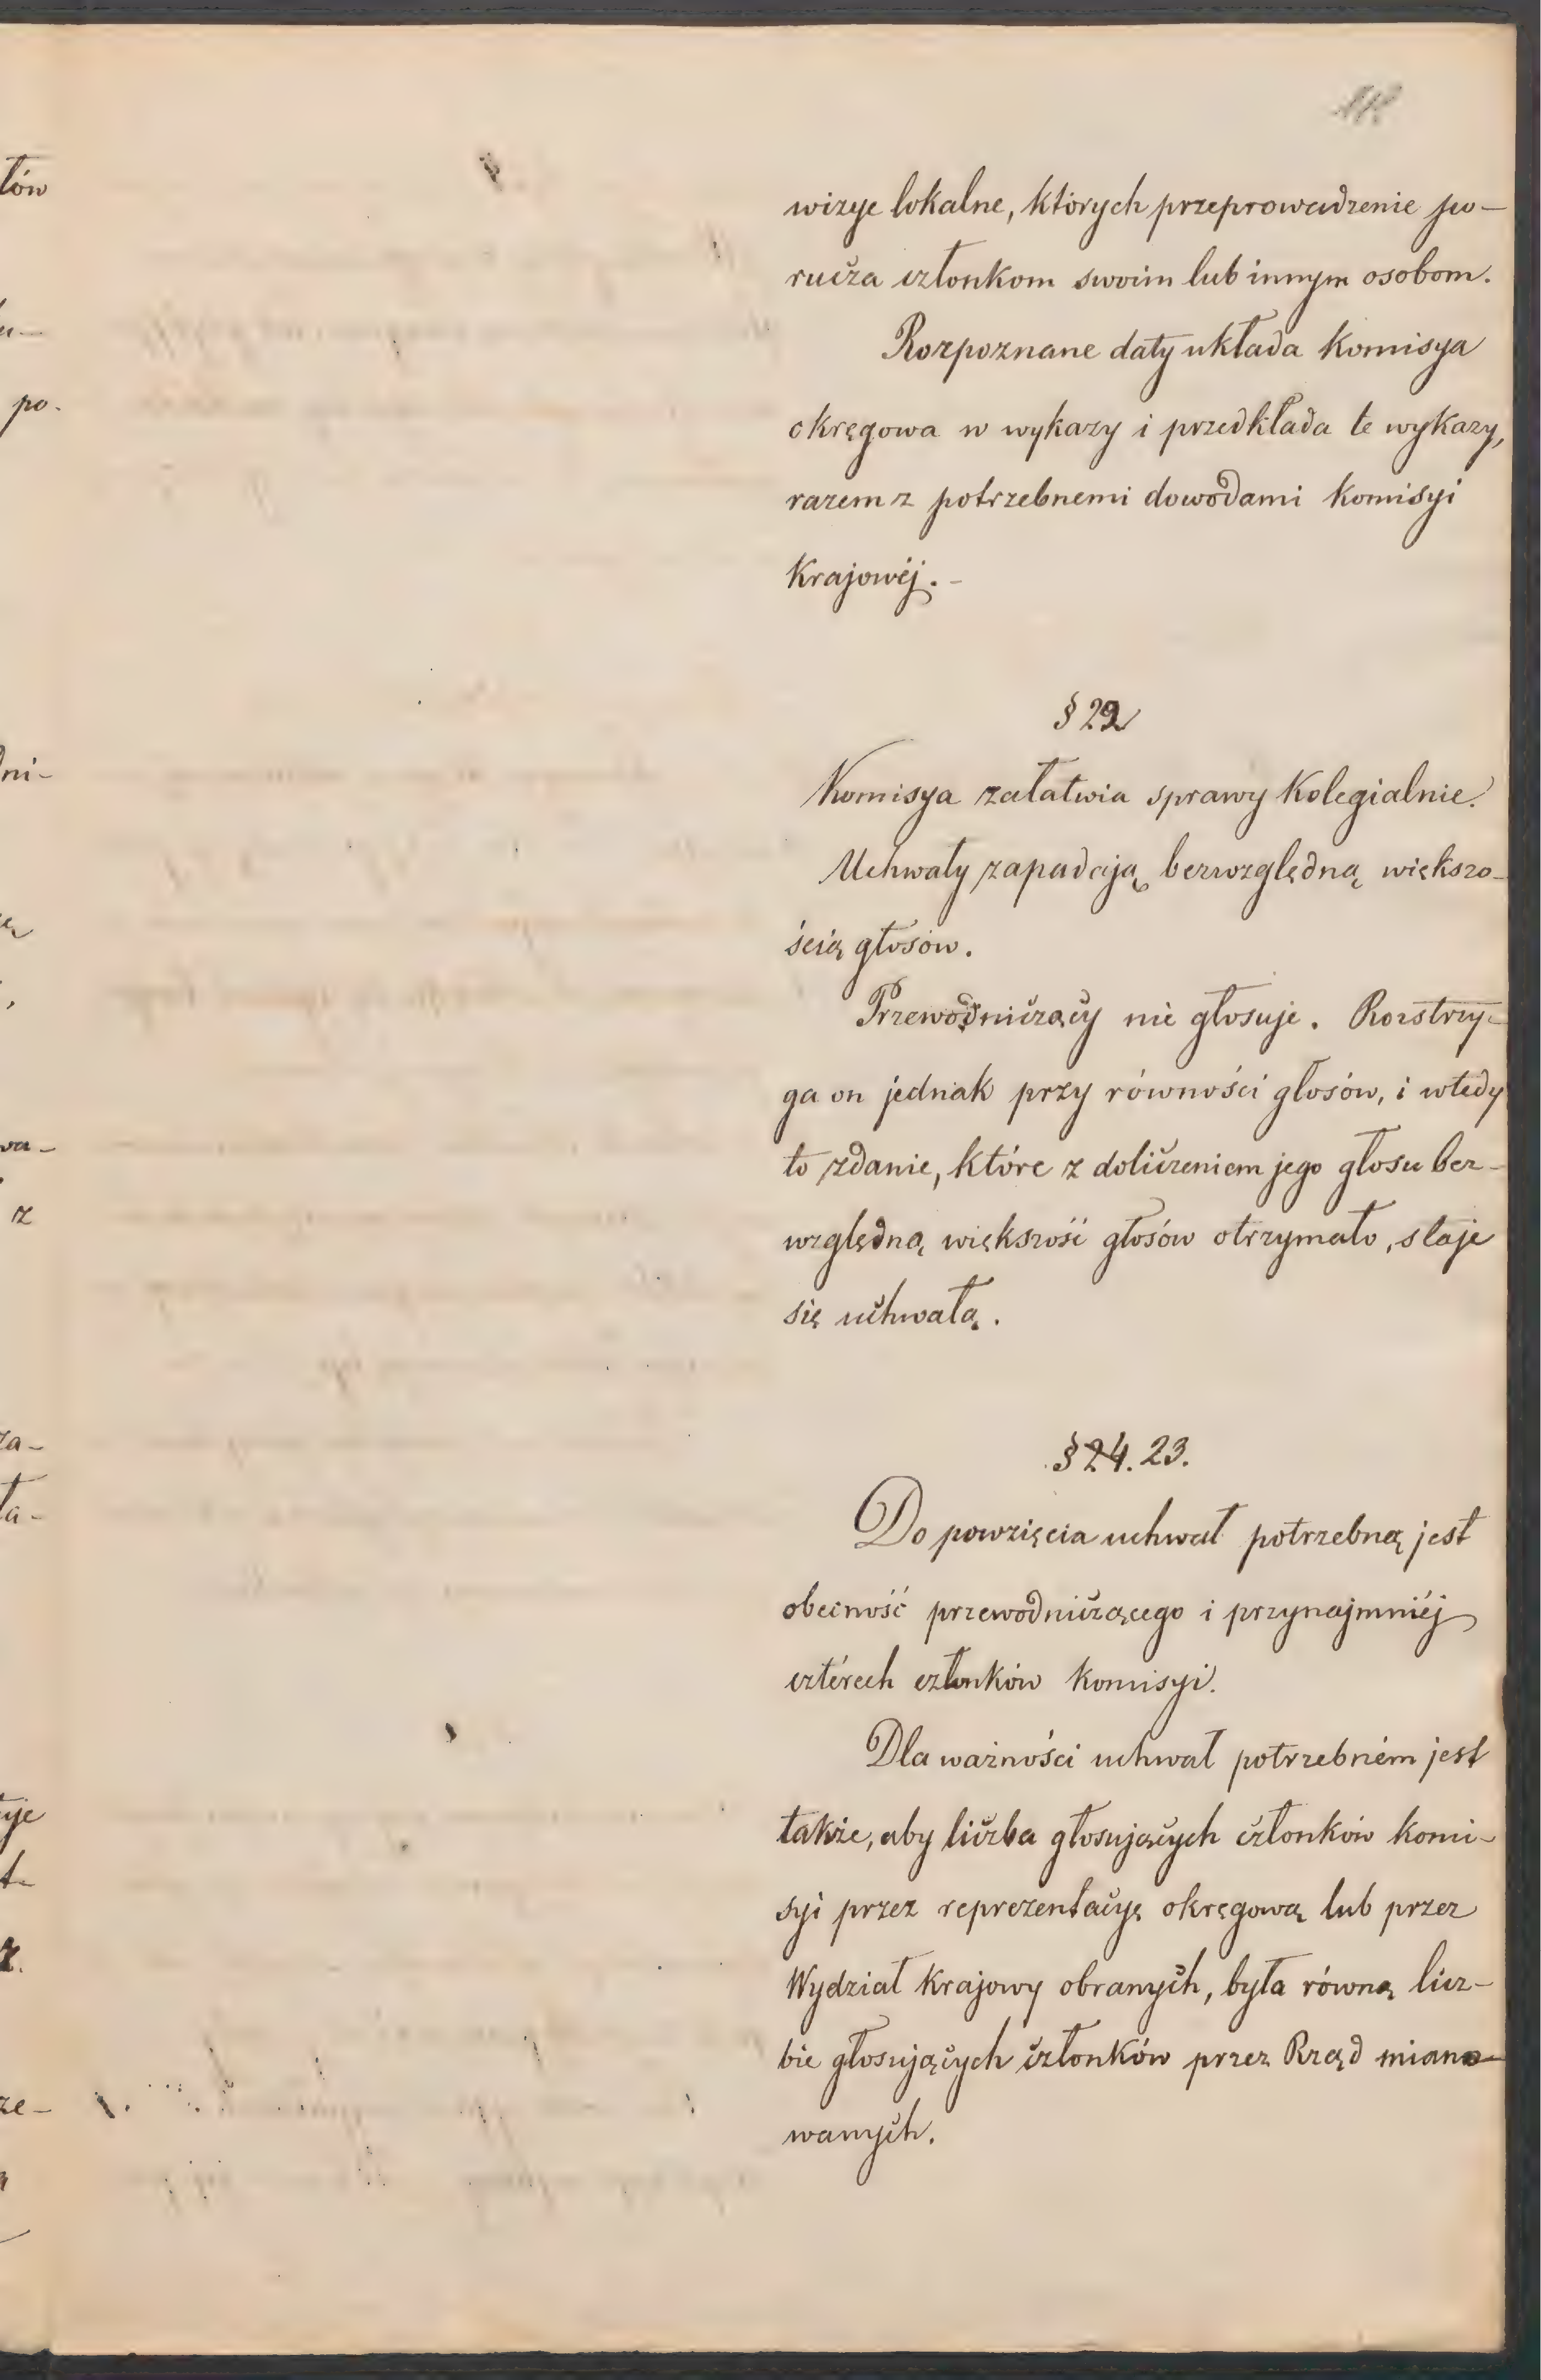 wizye lokalne, których przeprowadzenie po-
rucza członkom swoim lub innym osobom.
Rozpoznane daty układa komisya
okręgowa w wykazy i przedkłada te wykazy,
razem z potrzebnemi dowodami komisyi
krajowéj. -
§ 22
Komisya załatwia sprawy kolegialnie.
Uchwały zapadają bezwzględną większo-
ścią głosów.
Przewodniczący nie głosuje. Rozstrzy-
ga on jednak przy równości głosów, i wtedy
to zdanie, które z doliczeniem jego głosu bez-
względną większość głosów otrzymało, staje
się uchwałą.
§ 24. 23.
Do powzięcia uchwał potrzebną jest
obecność przewodniczącego i przynajmniéj
cztérech członków komisyi.
Dla ważności uchwał potrzebném jest
także, aby liczba głosujących członków komi-
syi przez reprezentacyę okręgową lub przez
Wydział krajowy obranych, była równą licz-
bie głosujących członków przez Rząd miano-
wanych.
tów
po.
dni-
z
za-
ła-
ze-